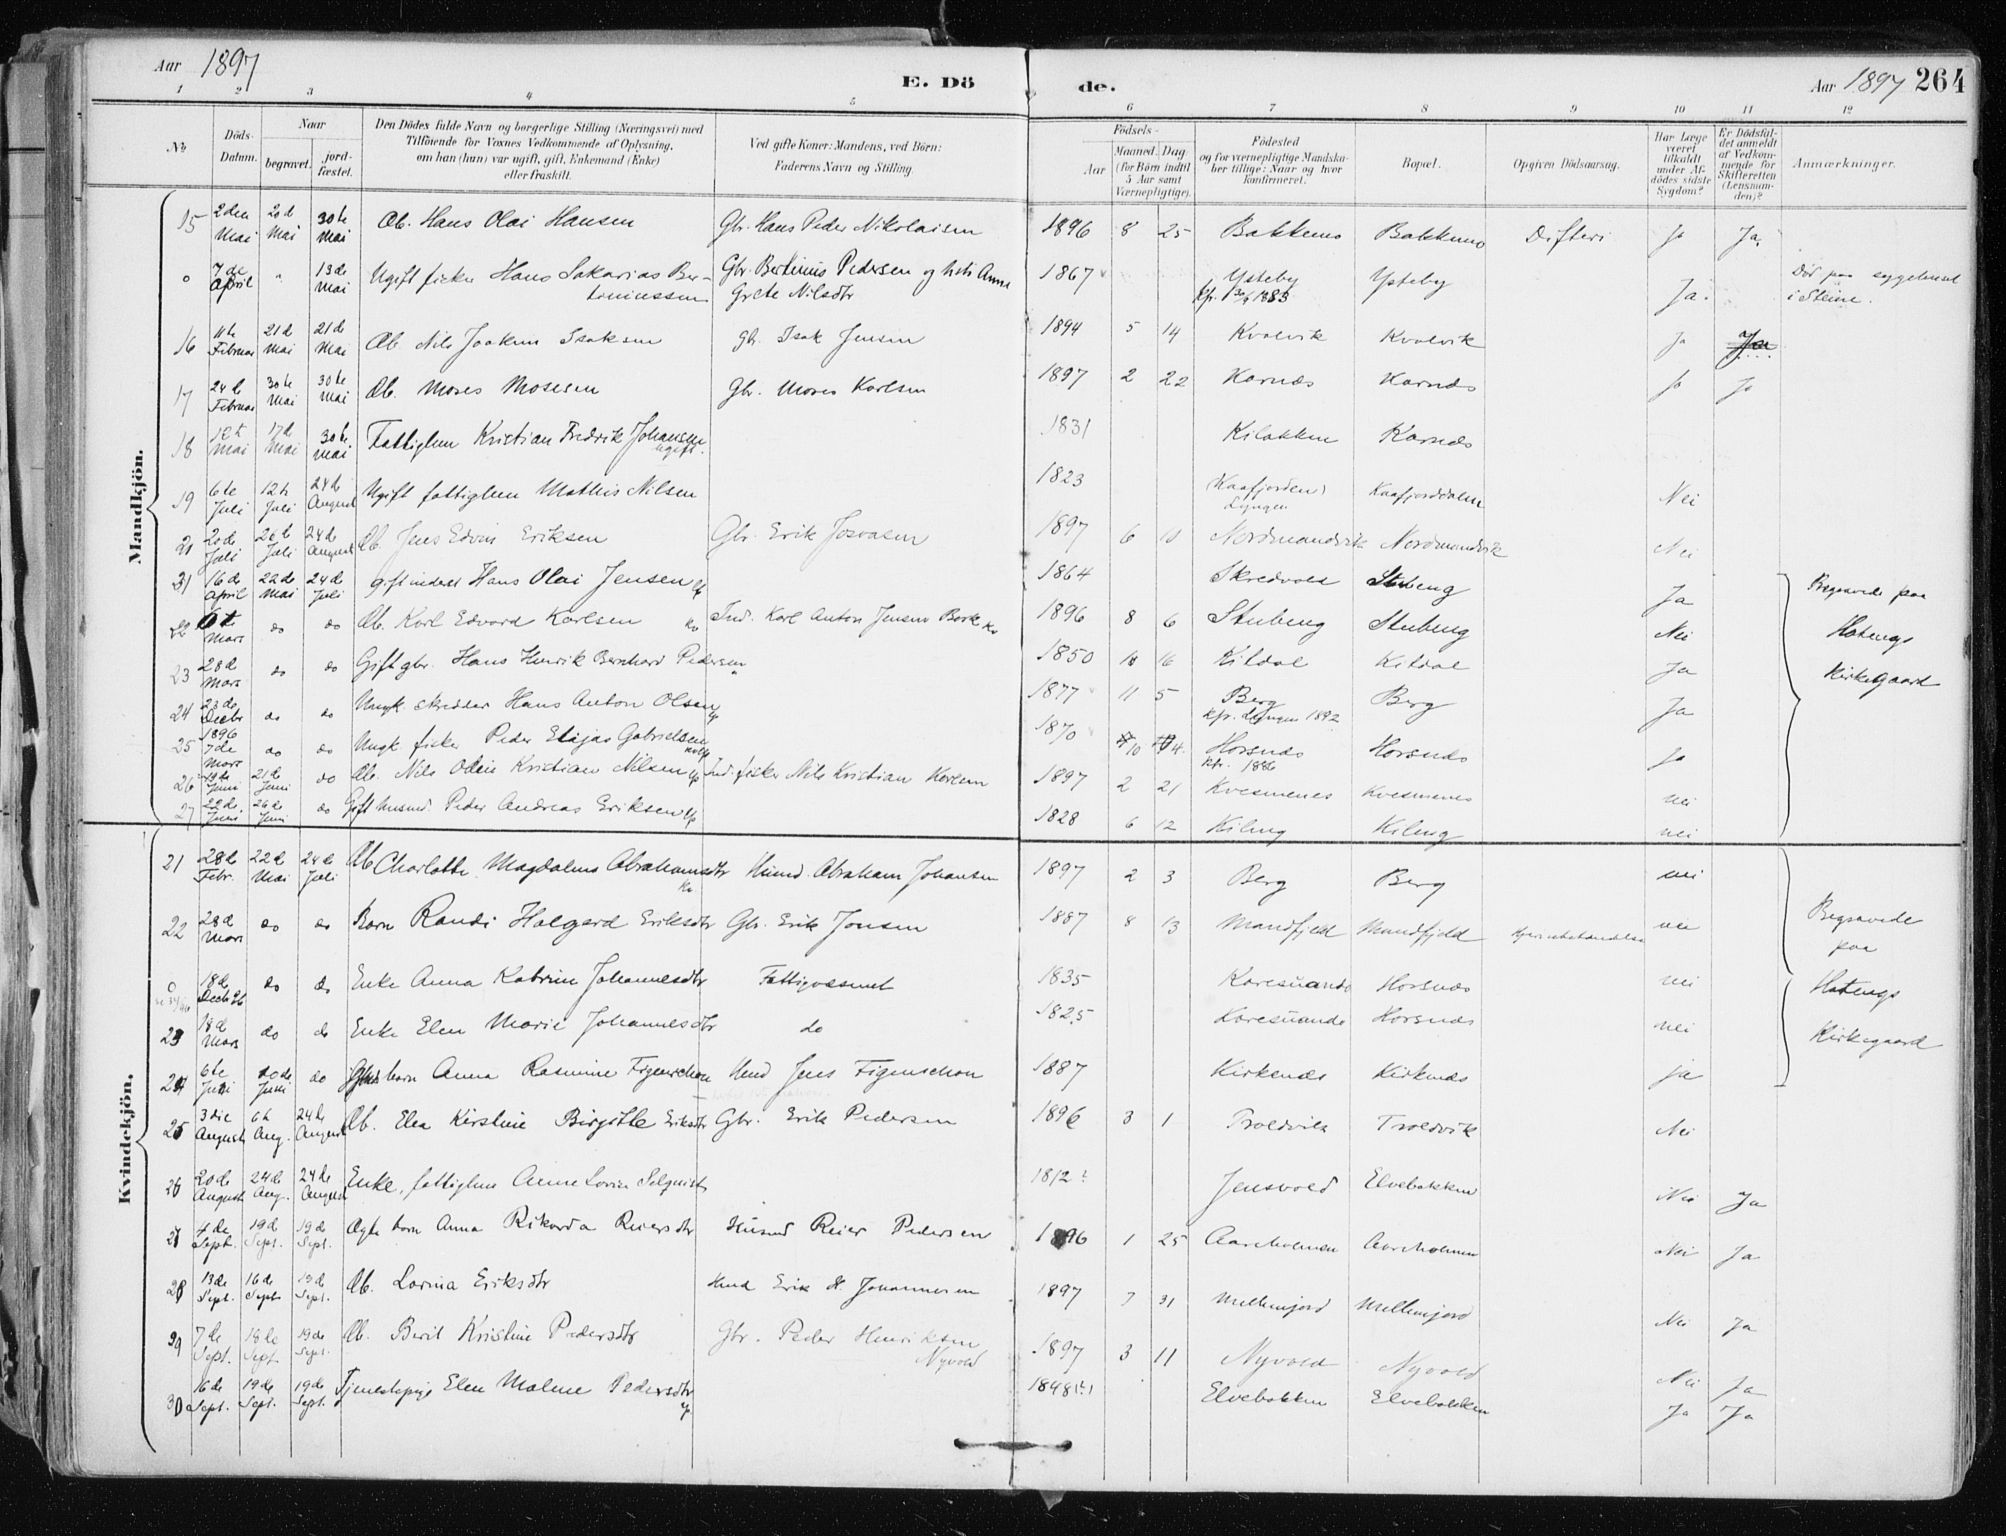 Aar 1897
E. Dö
de.
Aar 1897 264
1 2 3 4 5 6 7 8 9 10 11 12
No
Döds-Datum.
Naar begravet. jordfæstet.
Den Dödes fulde Navn og borgerlige Stilling (Næringsvei) med Tilföiende for Voxnes Vedkommende af Oplysning, om han (hun) var ugift, gift, Enkemand (Enke) eller fraskilt.
Ved gifte Koner: Mandens, ved Börn: Faderens Navn og Stilling.
Födsels- Aar Maaned. Dag. (for Börn indtil 5 Aar samt Værnepligtige).
Födested og for værnepligtige Mandskaber tillige: Naar og hvor konfirmeret.
Bopæl.
Opgiven Dödsaarsag.
Har Læge været tilkaldt under Afdödes sidste Sygdom?
Er Dödsfaldet anmeldt af Vedkommende for Skifteretten (Lensmanden)?
Anmærkninger.
Mandkjön.
15 2den Mai 20d Mai 30te Mai Ob. Hans Olai Hansen Gbr. Hans Peder Nikolaisen 1896 8 25 Bakkemo Bakkemo Difteri Ja Ja
0 7de April " 13de Mai Ugift fisker Hans Sakarias Bertiniussen Gbr. Bertinius Pedersen og h. Anne Grete Nilsdtr 1867 Ysteby Ysteby Ja. Död paa sygehuset i Steine.
kfr. 1883
16 11te Februar 21d Mai 21d Mai Ob. Nils Joakim Isaksen Gbr. Isak Jensen 1894 5 14 Kvalvik Kvalvik Ja Ja
17 24d Februar 30te Mai 30te Mai Ob. Moses Mosesen Gbr. Moses Karlsen 1897 2 22 Karnæs Karnæs Ja Ja
18 12t Mai 17d Mai 30te Mai Fattiglem Kristian Fredrik Johansen ugift. 1831 Kilbakken Karnæs
19 6te Juli 12te Juli 24d August Ugift fattiglem Mathis Nilsen 1823 (Kaafjorden) Lyngen Kaafjorddalen Nei
20de Juli 26d Juli 24d August Ob. Jens Edvin Eriksen Gbr. Erik Josvasen 1897 6 10 Nordmandvik Nordmandvik Nei
16de April 22de Mai 24de Juli Gift inderst Hans Olai Jensen 1864 Skredvold Stubeng Ja Begravede paa
22 Mars do do Ob. Karl Edvard Karlsen Ind. Karl Anton Jensen 1896 8 6 Stubeng Stubeng Nei Hatengs
23 28d Mars do do Gift gbr. Hans Henrik Bernhard Pedersen 1850 16 Kitdal Kitdal Ja Kirkegaard
24 23de Decbr 1896 do do Ungk. skredder Hans Anton Olsen 1877 11 5 Berg Berg Ja
kfr. Lyngen 1892
25 7de Mars do do Ungk fisker Peder Elijas Gabrielsen 1870 10 4 Horsnæs Horsnæs Ja
kfr. 1886
26 Juni 21d Juni do Ob. Nils Odin Kristian Nilsen Ind. fisker Nils Kristian 1897 2 21 Kvesmenes Kvesmenes nei
27 22d. Juni 26de Juni do Gift husmd Peder Andreas Eriksen 1828 6 12 Kileng Kileng nei
Kvindekjön.
21 28d Febr. 22d Mai 24d Juli Ob Charlotte Magdalena Abrahamsdtr Husmd. Abraham Johansen 1897 2 3 Berg Berg nei
22 28d Mars do do Barn Randi Halgerd Eriksdtr Gbr. Erik Jonsen 1887 8 13 Mandfjeld Mandfjeld nei Begravede paa
0 18d Decb 96 do do Enke Anna Katrine Johannesdtr Fattigvæsenet 1835 Karesuando Horsnæs nei Hatengs
23 18d Mars do do Enke Elen Marie Johannesdtr do 1825 Karesuando Horsnæs nei Kirkegaard
24 6te Juni 20de Juni do barn Anna Rasmine Figenschou Hmd Jens Figenschou 1887 Kirkenæs Kirknæs ja
25 3die August 6te Aug. 24de August Ob. Elea Kirstine Birgitte Eriksdtr Gbr. Erik Pedersen 1896 3 1 Troldvik Troldvik Nei
26 20de August 24de Aug. 24de August Enke, fattiglem Anne Lovise Selqvist 1812? Jensvold Elvebakken Nei Ja
27 4de Sept. 19d Sept. 19d Sept. Ægte barn Anna Rikarda Reiersdtr Husmd Reier Pedersen 1896 1 25 Aarøholmen Aarøholmen Nei Ja
28 13de Sept. 16de Sept. 19d Sept. Ob. Lovisa Eriksdtr Hmd Erik H. Johannesen 1897 7 31 Mellemjord Mellemjord Nei Ja
29 7de Sept. 18de Sept. 19de Sept. Ob. Berit Kristine Pedersdtr Gbr. Peder Henriksen Nyvold 1897 3 11 Nyvold Nyvold Nei Ja
30 16de Sept. 19de Sept. 19de Sept. Tjenestepige Elen Malene Pedersdtr 1848(?) Elvebakken Elvebakken Ja Ja